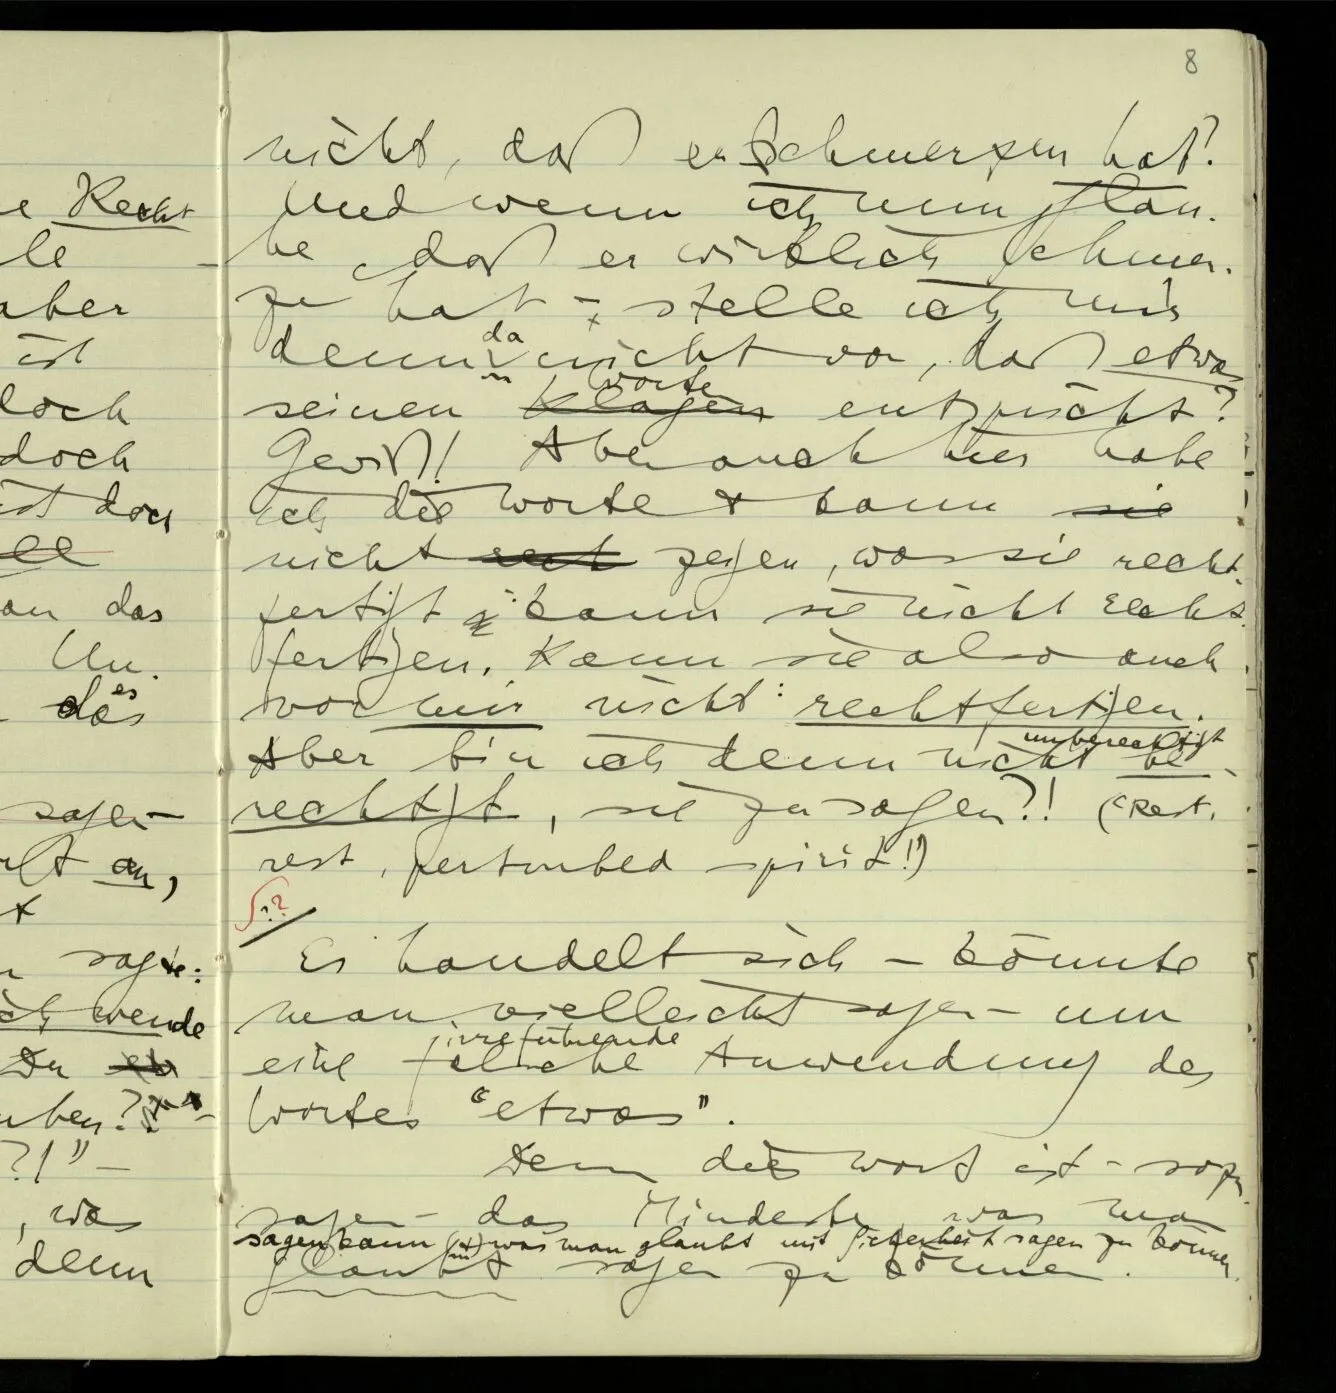 8
e Recht
le
aber
ist
doch
doch
ist doch
an das
Un-
es
das
sagen –
an,
sagte:
ich wende
Du
?!" –
, was
denn
nicht, daß er Schmerzen hat?
Und wenn ich nun glau-
be daß er wirklich Schmer-
zen hat – stelle ich mir
da
denn nicht vor, daß etwas
Worte
seinen Klagen entspricht?
Gewiß! Aber auch hier habe
ich die Worte & kann sie
nicht zeigen, was sie recht-
fertigt; kann sie nicht recht-
fertigen. Kann sie also auch
vor mir nicht: rechtfertigen.
unberechtigt
Aber bin ich denn nicht be-
rechtigt, sie zu sagen?! ("Rest,
rest, perturbed spirit!")
??
Es handelt sich – könnte
man vielleicht sagen – um
irreführende
eine falsche Anwendung des
Wortes "etwas".
Denn dies Wort ist – sozu-
sagen – das Mindeste, was man
sagen kann was man glaubt mit Sicherheit sagen zu können.
glaubt sagen zu können.